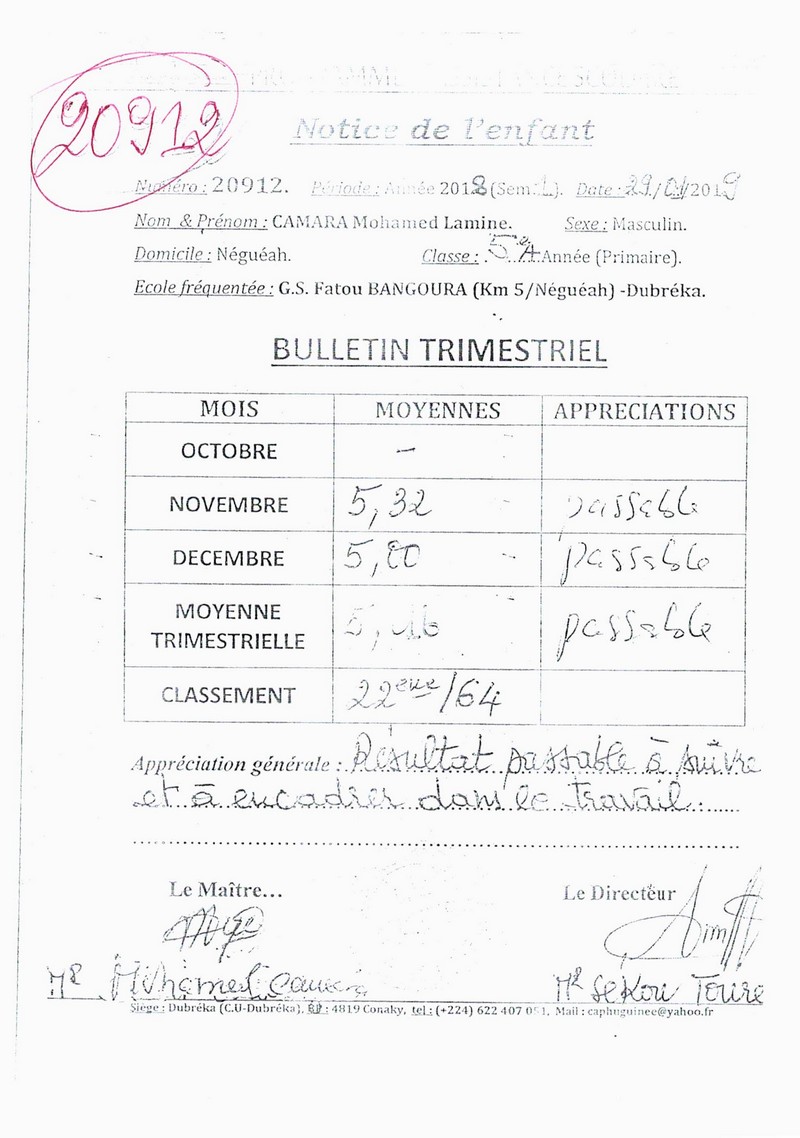 20912
Notice de l'enfant
Numéro : 20912. Période : Année 2018 (Sem: 1). Date : 29/01/2019
Nom & Prénom : CAMARA Mohamed Lamine. Sexe : Masculin.
Domicile : Néguéah. Classe : 5e A Année (Primaire).
Ecole fréquentée : G.S. Fatou BANGOURA (Km 5/Néguéah) -Dubréka.
BULLETIN TRIMESTRIEL
MOIS MOYENNES APPRECIATIONS
OCTOBRE –
NOVEMBRE 5,32 passable
DECEMBRE 5,00 passable
MOYENNE
TRIMESTRIELLE 5,16 passable
CLASSEMENT 22ème/64
Appréciation générale : Résultat passable à suivre
et à encadrer dans le travail.
Le Maître... Le Directeur
Mr Mohamed Camara Mr Sekou Toure
Siège : Dubréka (C.U-Dubréka), BP : 4819 Conaky, tel : (+224) 622 407 051, Mail : caphuguinee@yahoo.fr